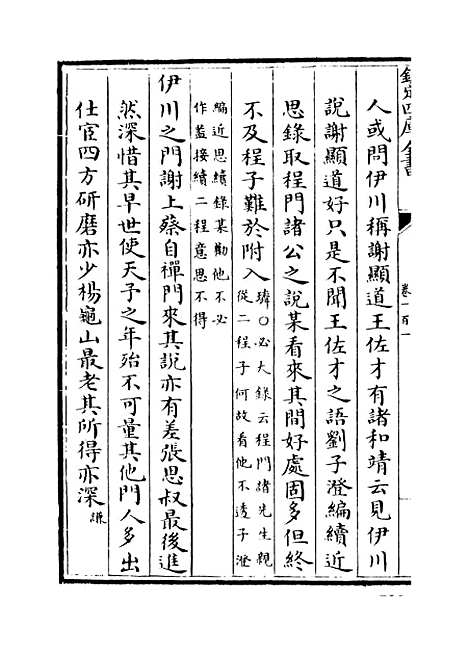 欽定四庫全書
卷一百一
人或問伊川稱謝顯道王佐才有諸和靖云見伊川
說謝顯道好只是不聞王佐才之語劉子澄編續近
思錄取程門諸公之說某看來其間好處固多但終
不及程子難於附入璘○必大錄云程門諸先生親
從二程子何故看他不透子澄
編近思續錄某勸他不必
作蓋接續二程意思不得
伊川之門謝上蔡自禪門來其說亦有差張思叔最後進
然深惜其早世使天子之年殆不可量其他門人多出
仕宦四方研磨亦少楊龜山最老其所得亦深謙